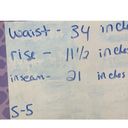 waist - 34 inches
rise - 11 1/2 inches
inseam - 21 inches
S-5